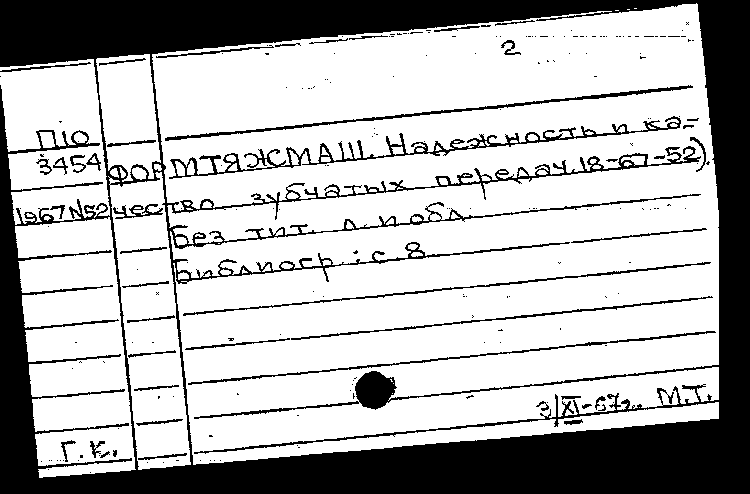 2
П10
3454 ФОРМТЯЖМАШ. Надежность и ка-
1967 N52 чество зубчатых передач. 18-67-52).
Без тит. л. и обл.
Библиогр.: с. 8
3/XI-67г. М.Т.
Г.К.